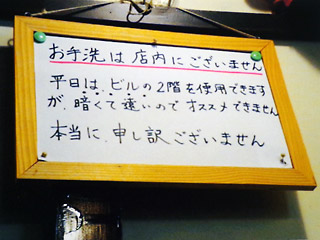 お手洗は店内にございません
平日は、ビルの2階を使用できます
が、暗くて遠いのでオススメできません
本当に、申し訳ございません